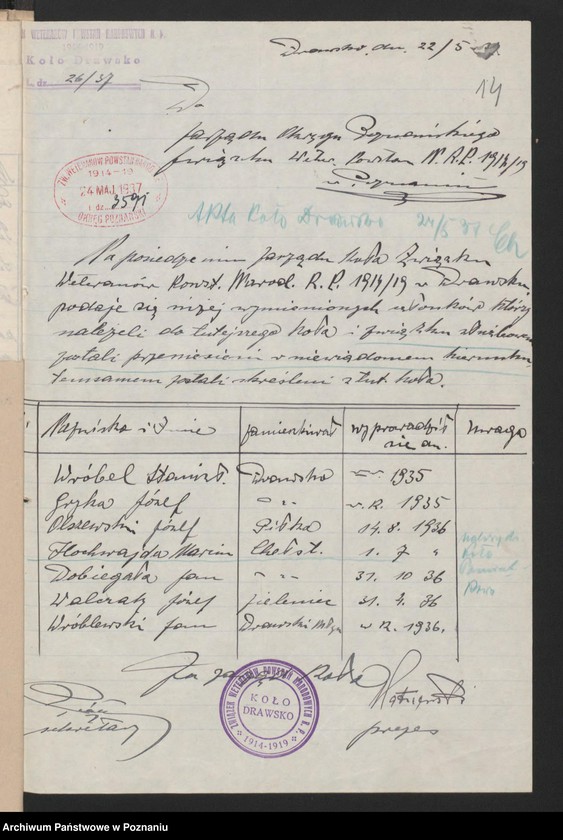 WETERANÓW POWSTAŃ NARODOWYCH R. P.
1914-1919
Koło Drawsko
L. dz. 26/37
Drawsko, dn. 22/5
14
Do
Zarządu Okręgu Poznańskiego
Związku Wetr. Powstan N. R. P. 1914/19
w Poznaniu
ZW. WETERANÓW POWSTAŃ NAROD.
1914-19
24 MAJ 1937
L. dz. 3591
OKRĘG POZNAŃSKI
Akta Koło Drawsko 24/5 37
Na posiedzeniu Zarządu Koła Związku
Weteranów Powst. Narod. R. P. 1914/19 w Drawsku,
podaje się niżej wymienionych członków którzy
należeli do tutejszego Koła i związku
zostali przeniesieni w niewiadomem kierunku,
temsamem zostali skreśleni z tut. Koła.
Nazwisko i Imię zamieszkiwał wyprowadził się dn. Uwaga
Wróbel Stanisł. Drawsko 1935
Gryka Józef " w. R. 1935
Olszewski Józef Piłka 14. 8. 1936
Hochwajda Marcin Chełst. 1. 7 "
Dobiegała Jan " 31. 10 36
Walczak Józef Zieleniec 31. 4. 36
Wróblewski Jan Drawski Młyn w R. 1936.
Za zarząd Koła
ZWIĄZEK WETERANÓW POWSTAŃ NARODOWYCH R. P.
KOŁO
DRAWSKO
1914-1919
sekretarz
prezes
Archiwum Państwowe w Poznaniu